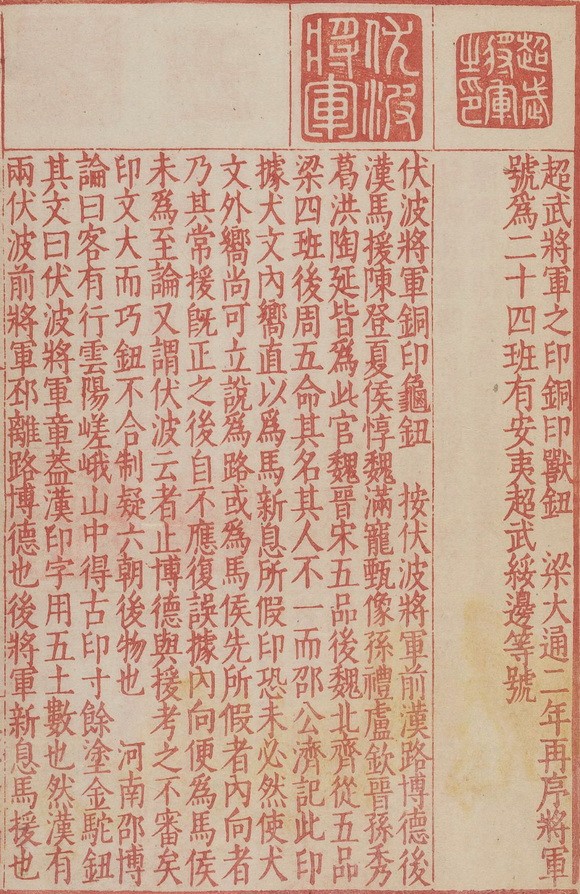 超武將軍之印
伏波將軍
超武將軍之印銅印獸鈕　梁大通二年再序將軍
號爲二十四班有安夷超武綏邊等號
伏波將軍銅印龜鈕　按伏波將軍前漢路博德後
漢馬援陳登夏侯惇魏滿寵甄像孫禮盧欽晉孫秀
葛洪陶延皆爲此官魏晉宋五品後魏北齊從五品
梁四班後周五命其名其人不一而邵公濟記此印
據犬文內嚮直以爲馬新息所假印恐未必然使犬
文外嚮尚可立說爲路或爲馬侯先所假者內向者
乃其常援旣正之後自不應復誤據內向便爲馬侯
未爲至論又謂伏波云者止博德與援考之不審矣
印文大而巧鈕不合制疑六朝後物也　河南邵博
論曰客有行雲陽嵯峨山中得古印寸餘塗金駝鈕
其文曰伏波將軍章蓋漢印字用五土數也然漢有
兩伏波前將軍邳離路博德也後將軍新息馬援也